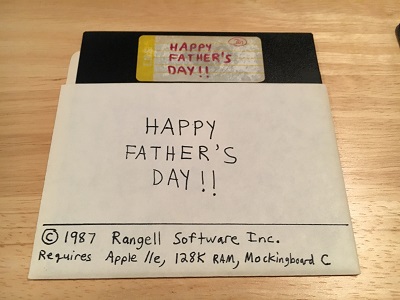 HAPPY
FATHER'S
DAY!!
HAPPY
FATHER'S
DAY!!
© 1987 Rangell Software Inc.
Requires Apple //e, 128K RAM, Mockingboard C